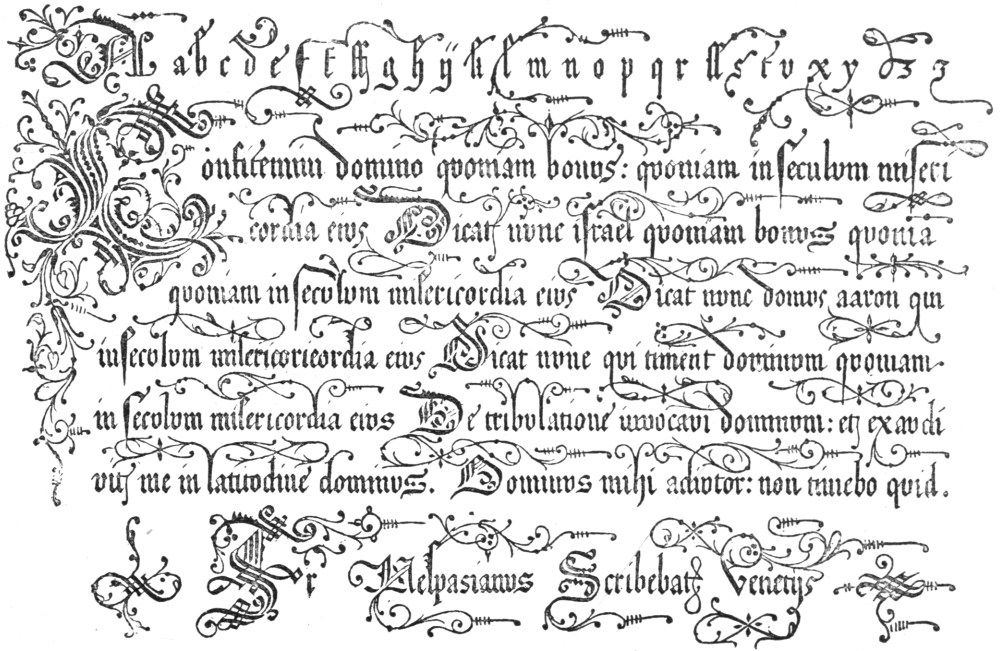 A a b c d e f f ff g h ij k l m n o p q r ſſ s t v x y z 3 3
Confitemini domino quoniam bonus: quoniam in seculum miseri
cordia eius Dicat nunc israel quoniam bonus quonia
quoniam in seculum misericordia eius Dicat nunc domus aaron qui
in seculum misericoricordia eius Dicat nunc qui timent dominum quoniam
in seculum misericordia eius De tribulatione invocavi dominum: et exaudi
vit me in latitudine dominus. Dominus mihi adiutor: non timebo quid.
Fr Vespasianus Scribebat Venetijs